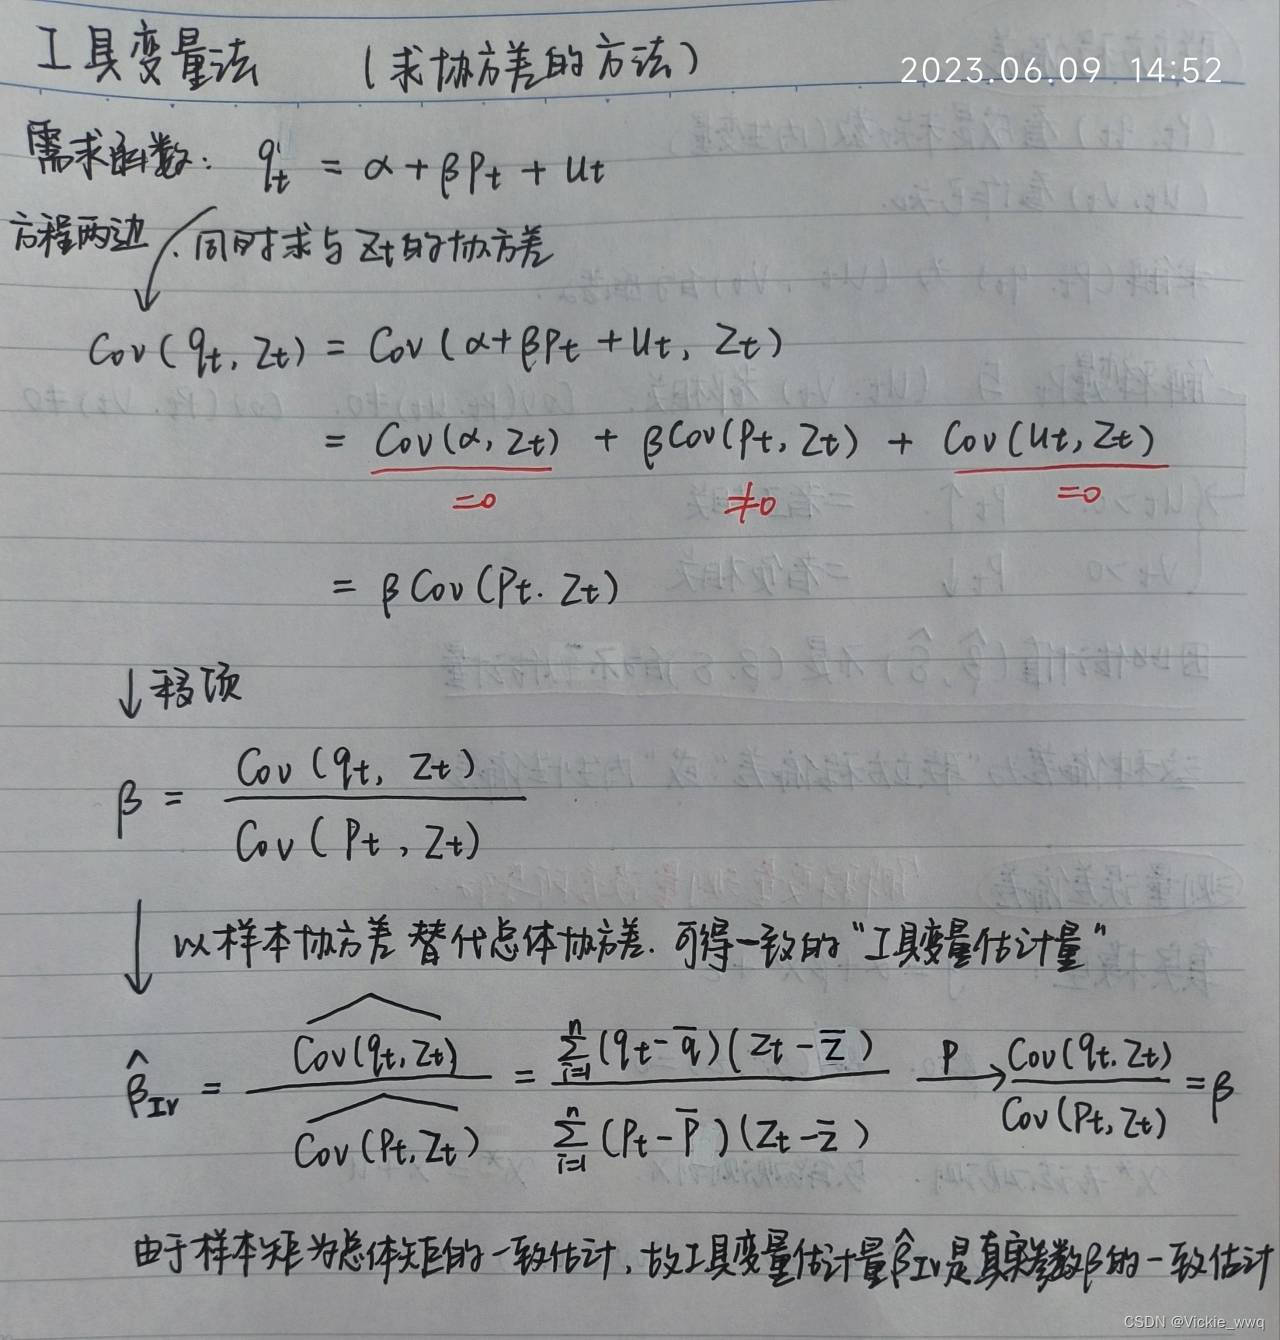 工具变量法 (求协方差的方法)
2023.06.09 14:52
需求函数: qt = α + βPt + Ut
方程两边 . 同时求与Zt的协方差
Cov(qt, Zt) = Cov(α+βPt +Ut, Zt)
= Cov(α, Zt) + βCov(Pt, Zt) + Cov(Ut, Zt)
=0 ≠0 =0
= βCov(Pt. Zt)
↓移项
β = Cov(qt, Zt) / Cov(Pt, Zt)
↓ 以样本协方差替代总体协方差. 可得一致的“工具变量估计量”
β̂IV = Cov(qt,Zt)^ / Cov(Pt,Zt)^ = Σⁿᵢ₌₁(qt-q̄)(Zt-z̄) / Σⁿᵢ₌₁(Pt-P̄)(Zt-z̄) —P→ Cov(qt.Zt) / Cov(Pt,Zt) = β
由于样本矩为总体矩的一致估计,故工具变量估计量β̂IV是真实参数β的一致估计
CSDN @Vickie_wwq